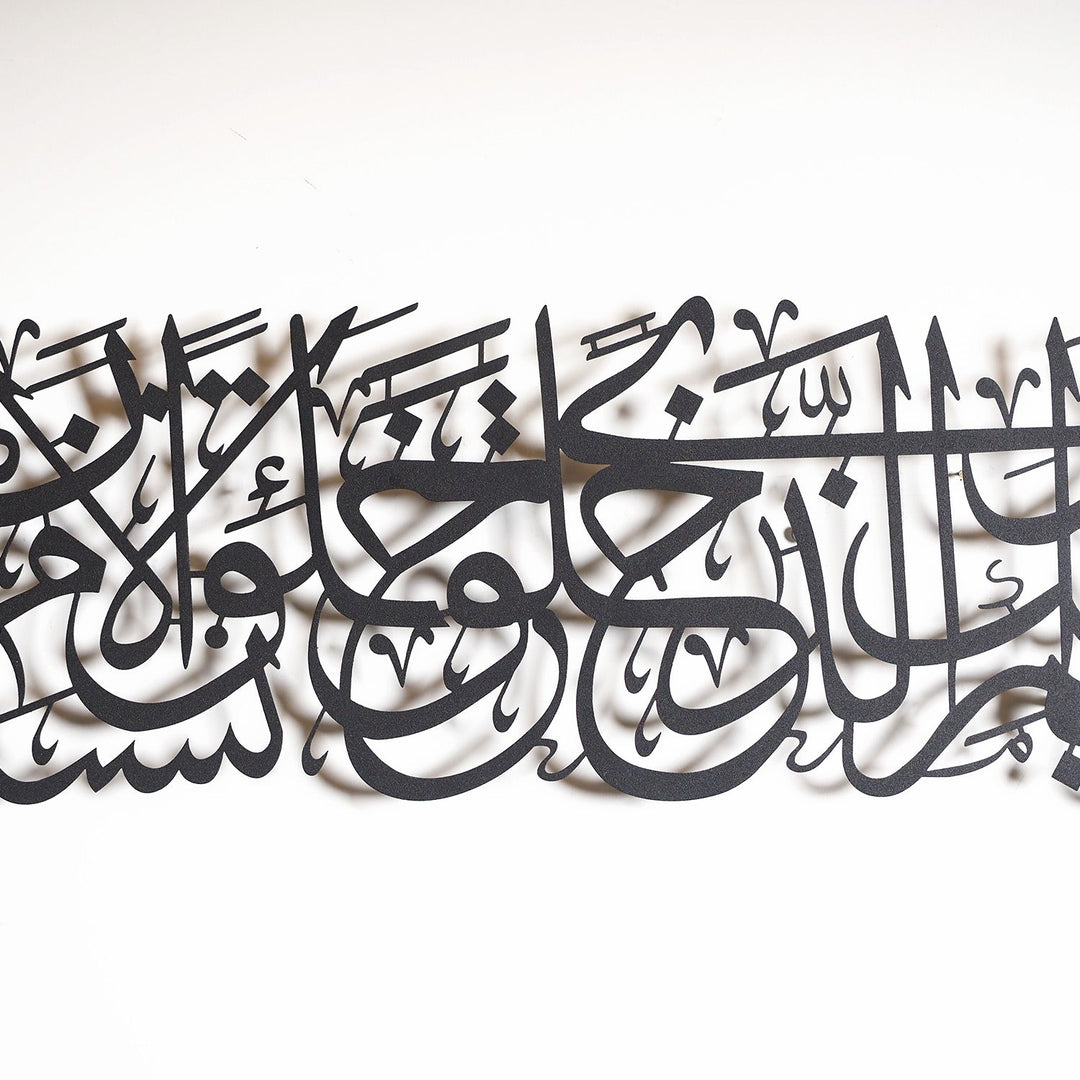 ربك الذي خلق خلق الإنسان من